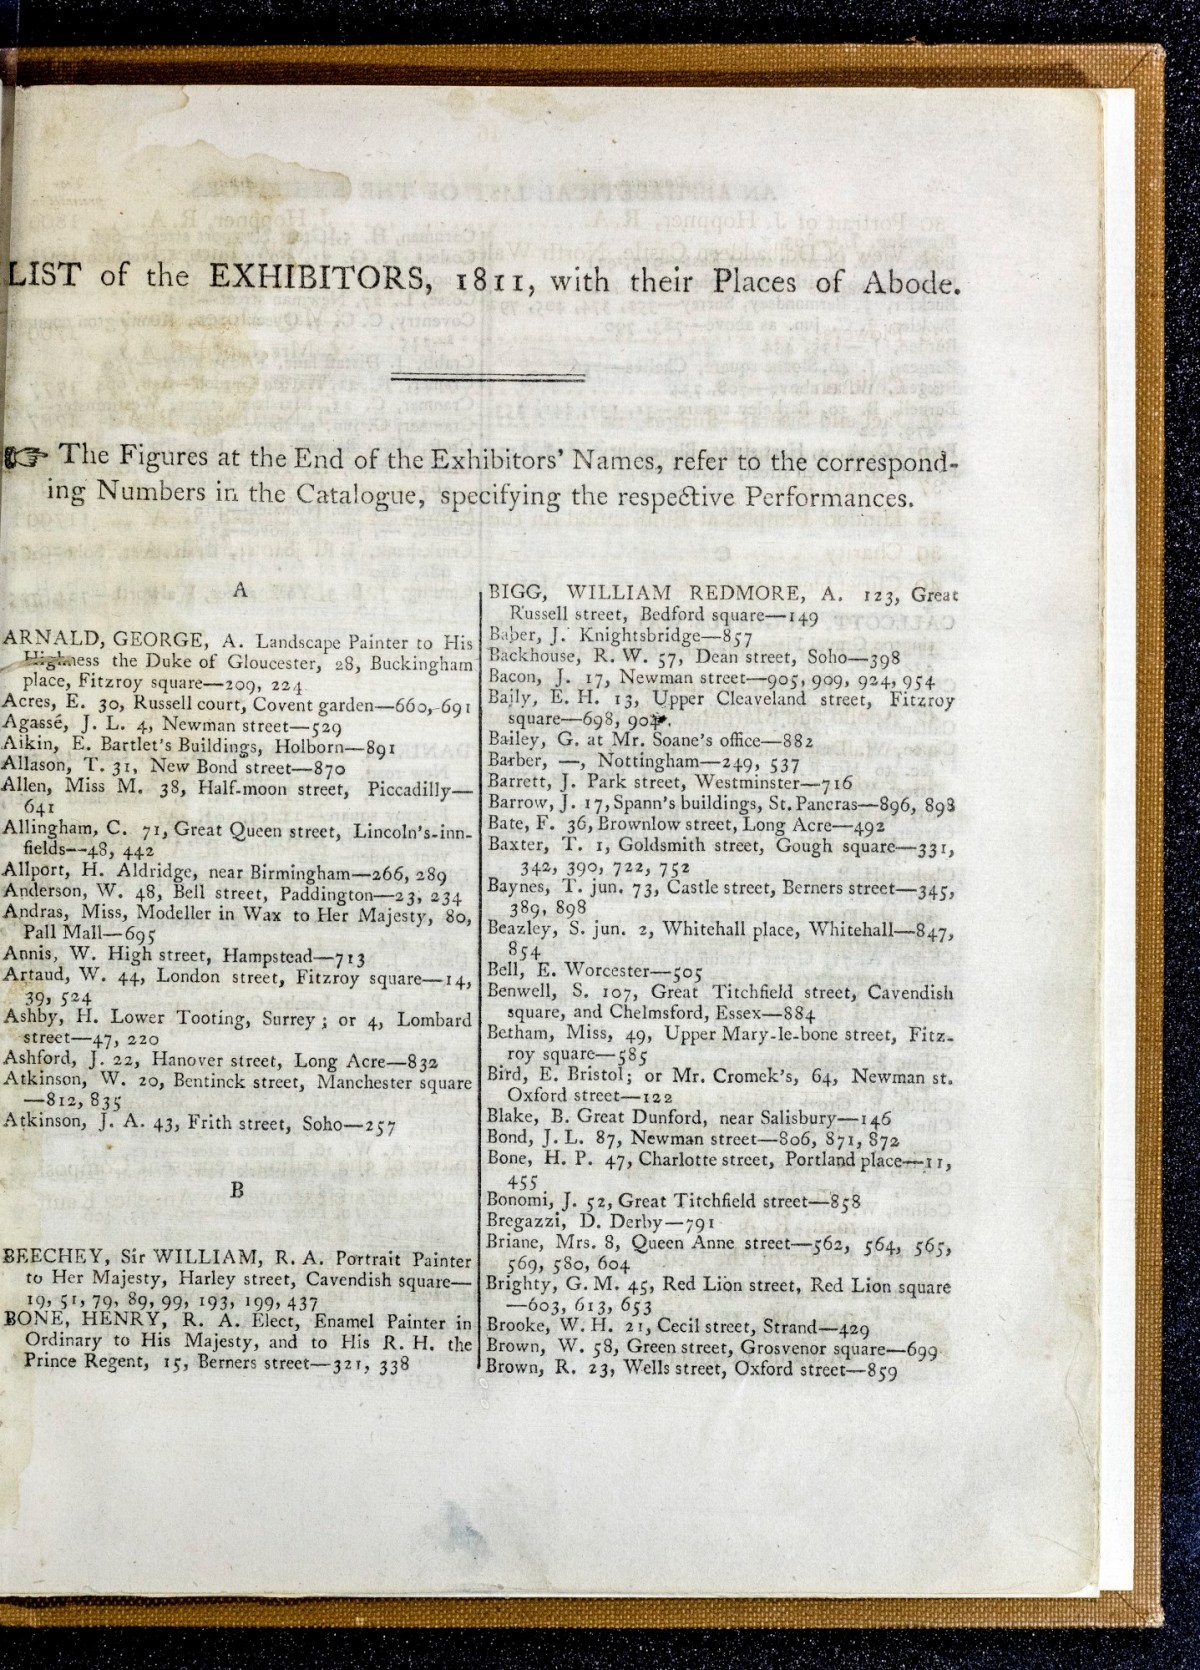 LIST of the EXHIBITORS, 1811, with their Places of Abode.
☞ The Figures at the End of the Exhibitors' Names, refer to the correspond-
ing Numbers in the Catalogue, specifying the respective Performances.
A
ARNALD, GEORGE, A. Landscape Painter to His
Highness the Duke of Gloucester, 28, Buckingham
place, Fitzroy square—209, 224
Acres, E. 30, Russell court, Covent garden—660, 691
Agassé, J. L. 4, Newman street—529
Aikin, E. Bartlet's Buildings, Holborn—891
Allason, T. 31, New Bond street—870
Allen, Miss M. 38, Half-moon street, Piccadilly—
641
Allingham, C. 71, Great Queen street, Lincoln's-inn-
fields—48, 442
Allport, H. Aldridge, near Birmingham—266, 289
Anderson, W. 48, Bell street, Paddington—23, 234
Andras, Miss, Modeller in Wax to Her Majesty, 80,
Pall Mall—695
Annis, W. High street, Hampstead—713
Artaud, W. 44, London street, Fitzroy square—14,
39, 524
Ashby, H. Lower Tooting, Surrey; or 4, Lombard
street—47, 220
Ashford, J. 22, Hanover street, Long Acre—832
Atkinson, W. 20, Bentinck street, Manchester square
—812, 835
Atkinson, J. A. 43, Frith street, Soho—257
B
BEECHEY, Sir WILLIAM, R. A. Portrait Painter
to Her Majesty, Harley street, Cavendish square—
19, 51, 79, 89, 99, 193, 199, 437
BONE, HENRY, R. A. Elect, Enamel Painter in
Ordinary to His Majesty, and to His R. H. the
Prince Regent, 15, Berners street—321, 338
BIGG, WILLIAM REDMORE, A. 123, Great
Russell street, Bedford square—149
Baber, J. Knightsbridge—857
Backhouse, R. W. 57, Dean street, Soho—398
Bacon, J. 17, Newman street—905, 909, 924, 954
Baily, E. H. 13, Upper Cleaveland street, Fitzroy
square—698, 904.
Bailey, G. at Mr. Soane's office—882
Barber, —, Nottingham—249, 537
Barrett, J. Park street, Westminster—716
Barrow, J. 17, Spann's buildings, St. Pancras—896, 898
Bate, F. 36, Brownlow street, Long Acre—492
Baxter, T. 1, Goldsmith street, Gough square—331,
342, 390, 722, 752
Baynes, T. jun. 73, Castle street, Berners street—345,
389, 898
Beazley, S. jun. 2, Whitehall place, Whitehall—847,
854
Bell, E. Worcester—505
Benwell, S. 107, Great Titchfield street, Cavendish
square, and Chelmsford, Essex—884
Betham, Miss, 49, Upper Mary-le-bone street, Fitz-
roy square—585
Bird, E. Bristol; or Mr. Cromek's, 64, Newman st.
Oxford street—122
Blake, B. Great Dunford, near Salisbury—146
Bond, J. L. 87, Newman street—806, 871, 872
Bone, H. P. 47, Charlotte street, Portland place—11,
455
Bonomi, J. 52, Great Titchfield street—858
Bregazzi, D. Derby—791
Briane, Mrs. 8, Queen Anne street—562, 564, 565,
569, 580, 604
Brighty, G. M. 45, Red Lion street, Red Lion square
—603, 613, 653
Brooke, W. H. 21, Cecil street, Strand—429
Brown, W. 58, Green street, Grosvenor square—699
Brown, R. 23, Wells street, Oxford street—859